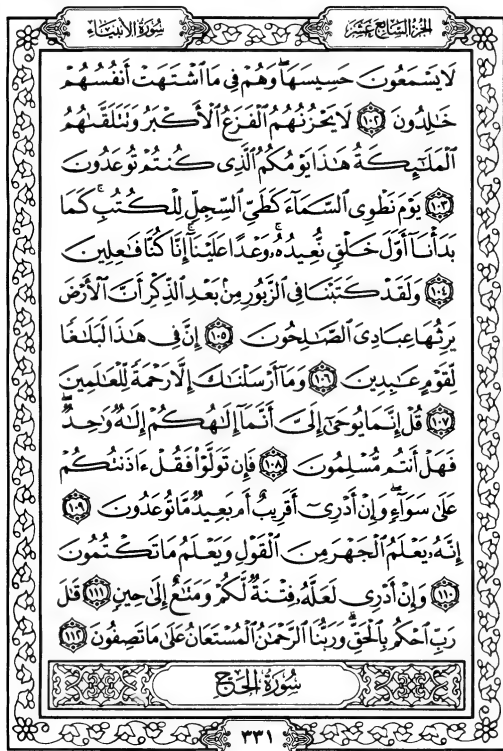 الجزء السابع عشر
سورة الأنبياء
لَا يَسْمَعُونَ حَسِيسَهَا ۖ وَهُمْ فِي مَا اشْتَهَتْ أَنفُسُهُمْ
خَالِدُونَ ١٠٢ لَا يَحْزُنُهُمُ الْفَزَعُ الْأَكْبَرُ وَتَتَلَقَّاهُمُ
الْمَلَائِكَةُ هَٰذَا يَوْمُكُمُ الَّذِي كُنتُمْ تُوعَدُونَ
١٠٣ يَوْمَ نَطْوِي السَّمَاءَ كَطَيِّ السِّجِلِّ لِلْكُتُبِ ۚ كَمَا
بَدَأْنَا أَوَّلَ خَلْقٍ نُّعِيدُهُ ۚ وَعْدًا عَلَيْنَا ۚ إِنَّا كُنَّا فَاعِلِينَ
١٠٤ وَلَقَدْ كَتَبْنَا فِي الزَّبُورِ مِن بَعْدِ الذِّكْرِ أَنَّ الْأَرْضَ
يَرِثُهَا عِبَادِيَ الصَّالِحُونَ ١٠٥ إِنَّ فِي هَٰذَا لَبَلَاغًا
لِّقَوْمٍ عَابِدِينَ ١٠٦ وَمَا أَرْسَلْنَاكَ إِلَّا رَحْمَةً لِّلْعَالَمِينَ
١٠٧ قُلْ إِنَّمَا يُوحَىٰ إِلَيَّ أَنَّمَا إِلَٰهُكُمْ إِلَٰهٌ وَاحِدٌ ۖ
فَهَلْ أَنتُم مُّسْلِمُونَ ١٠٨ فَإِن تَوَلَّوْا فَقُلْ ءَاذَنتُكُمْ
عَلَىٰ سَوَاءٍ ۖ وَإِنْ أَدْرِي أَقَرِيبٌ أَم بَعِيدٌ مَّا تُوعَدُونَ ١٠٩
إِنَّهُ يَعْلَمُ الْجَهْرَ مِنَ الْقَوْلِ وَيَعْلَمُ مَا تَكْتُمُونَ
١١٠ وَإِنْ أَدْرِي لَعَلَّهُ فِتْنَةٌ لَّكُمْ وَمَتَاعٌ إِلَىٰ حِينٍ ١١١ قَالَ
رَبِّ احْكُم بِالْحَقِّ ۗ وَرَبُّنَا الرَّحْمَٰنُ الْمُسْتَعَانُ عَلَىٰ مَا تَصِفُونَ ١١٢
سورة الحج
٣٣١